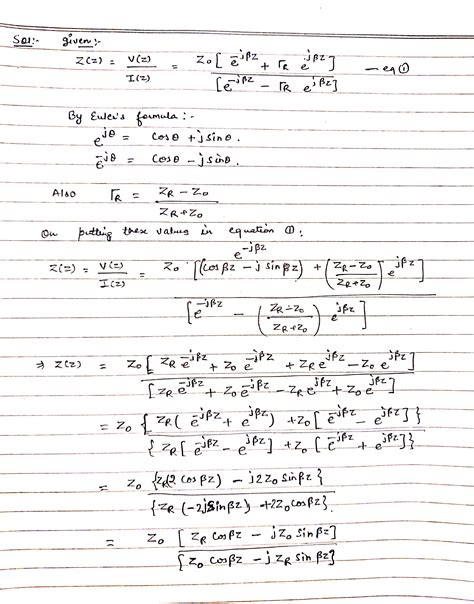 Sol:- given:-
Z(z) = V(z)/I(z) = Z₀[e^-jβz + Γ_R e^jβz] / [e^-jβz - Γ_R e^jβz] — eq ①
By Euler's formula :-
e^jθ = cosθ + j sinθ.
e^-jθ = cosθ - j sinθ.
Also Γ_R = (Z_R - Z₀)/(Z_R + Z₀)
On putting these values in equation ①:
e^-jβz
Z(z) = V(z)/I(z) = Z₀ [(cosβz - j sinβz) + ((Z_R - Z₀)/(Z_R + Z₀)) e^jβz] / [e^-jβz - ((Z_R - Z₀)/(Z_R + Z₀)) e^jβz]
⇒ Z(z) = Z₀[Z_R e^-jβz + Z₀ e^-jβz + Z_R e^jβz - Z₀ e^jβz] / [Z_R e^-jβz + Z₀ e^-jβz - Z_R e^jβz + Z₀ e^jβz]
= Z₀ {Z_R(e^-jβz + e^jβz) + Z₀[e^-jβz - e^jβz]} / {Z_R[e^-jβz - e^jβz] + Z₀[e^-jβz + e^jβz]}
= Z₀ {Z_R(2 cosβz) - j2Z₀ sinβz} / {Z_R(-2j sinβz) + 2Z₀ cosβz}.
= Z₀ [Z_R cosβz - jZ₀ sinβz] / [Z₀ cosβz - j Z_R sinβz]